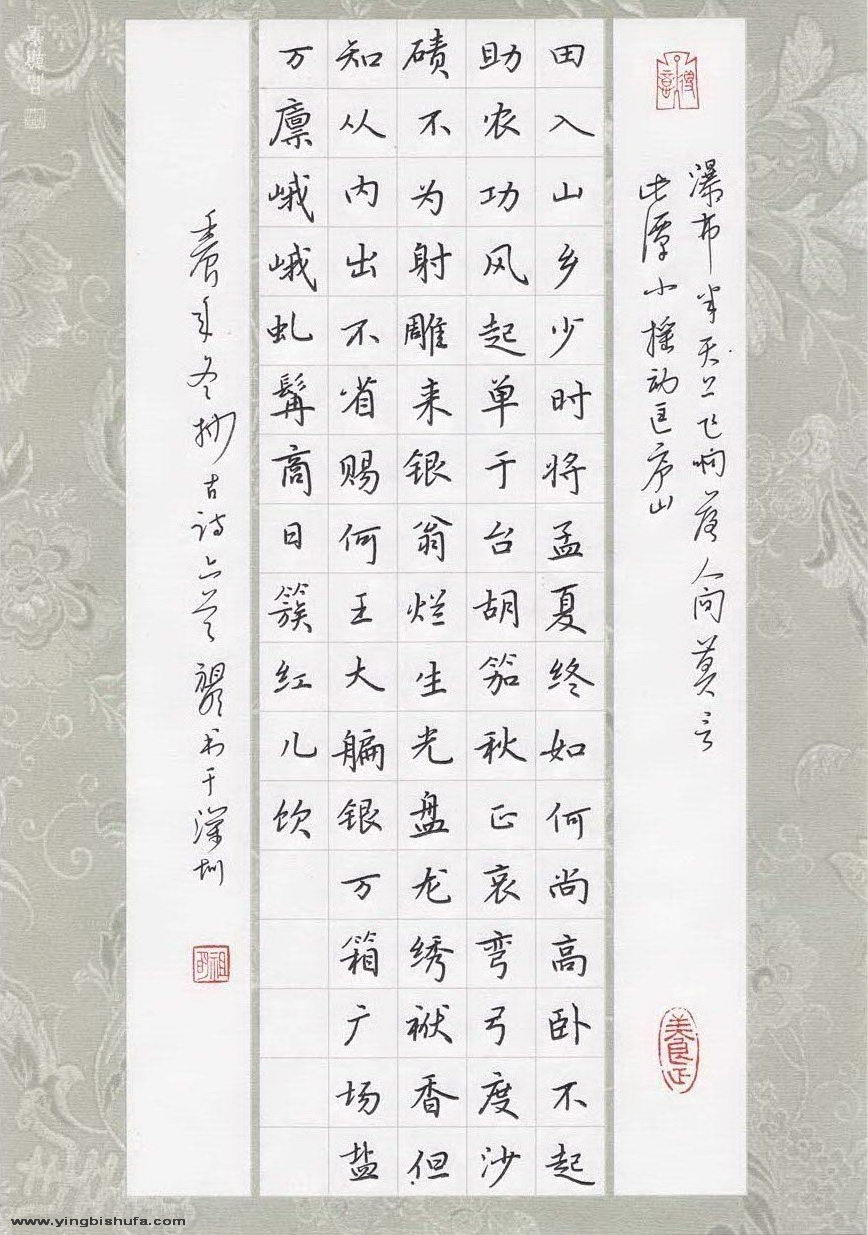 瀑布半天上飞响落人间莫言
此潭小摇动匡庐山
田入山乡少时将孟夏终如何尚高卧不起
助农功风起单于台胡笳秋正哀弯弓度沙
碛不为射雕来银翁烂生光盘龙绣袱香但
知从内出不省赐何王大艑银万箱广场盐
万廪峨峨虬髯商日簇红儿饮
壬辰年冬抄古诗六首祖明书于深圳
祖明
www.yingbishufa.com